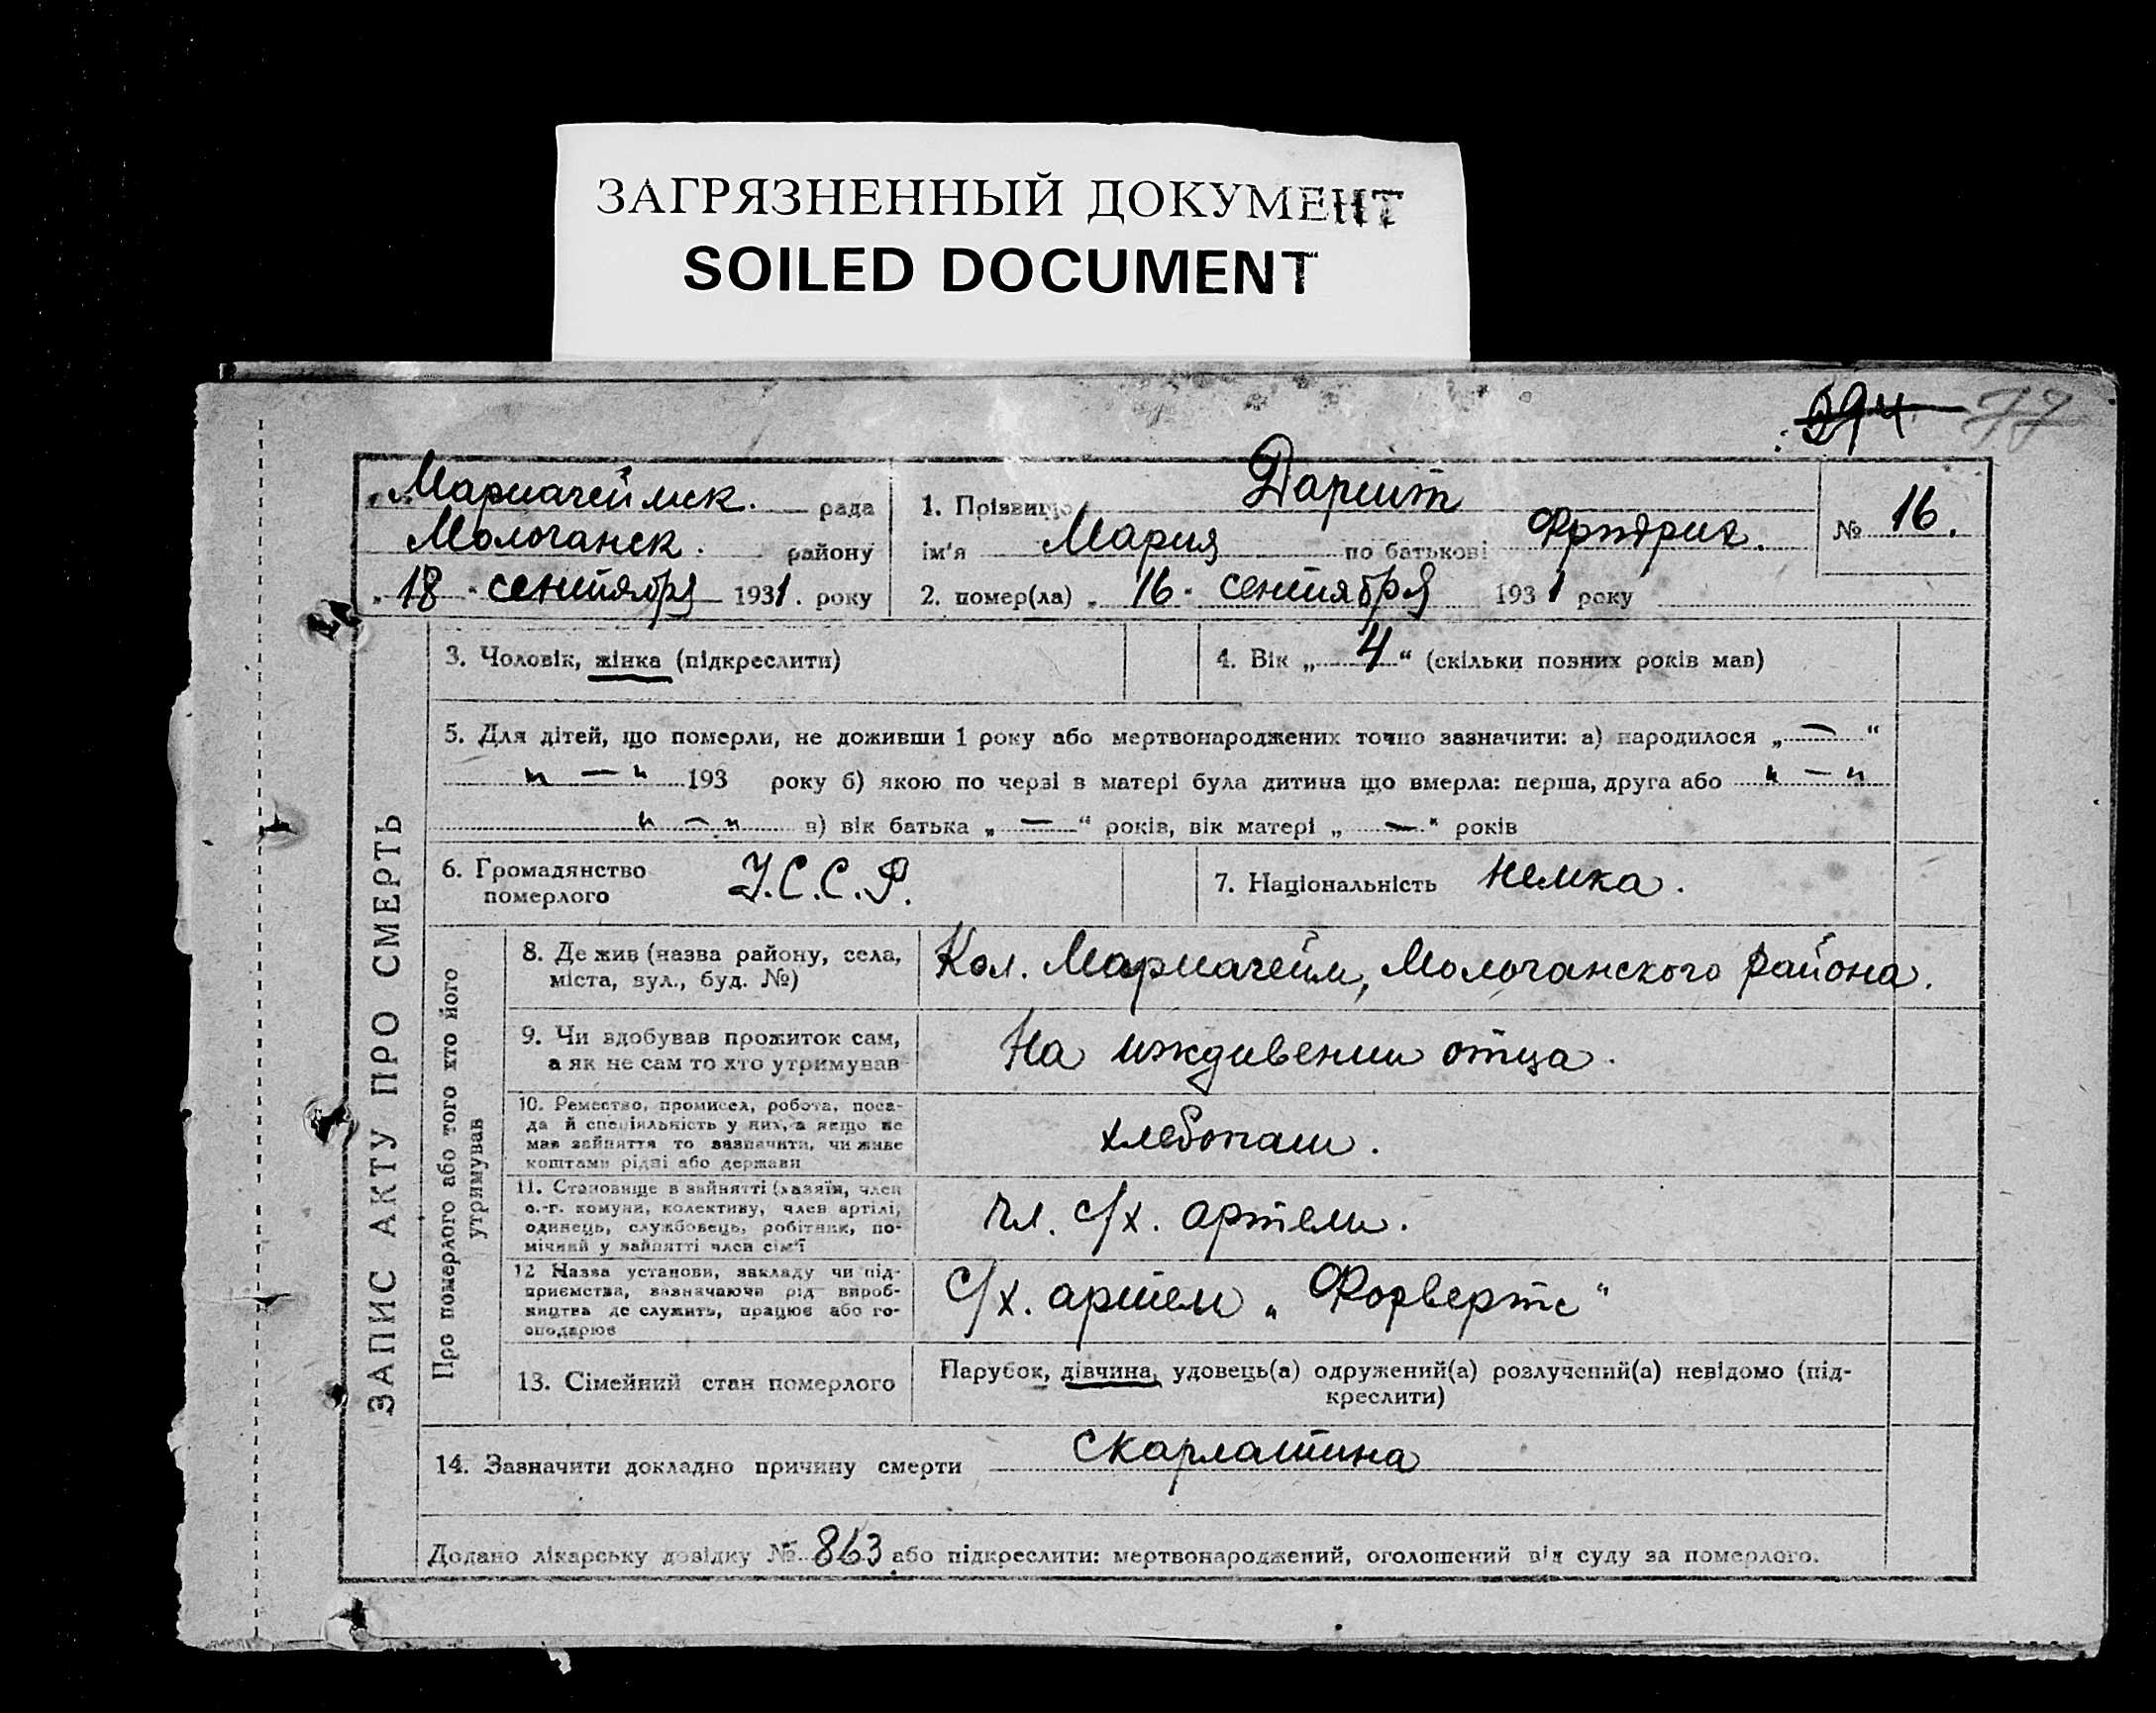 ЗАГРЯЗНЕННЫЙ ДОКУМЕНТ
SOILED DOCUMENT
594 77
Мариагеймск. рада
Молочанск. району
„ 18 " сентября 1931. року
1. Прізвище Даршт
ім'я Мария по батькові Фридрих.
№ 16.
2. помер(ла) „ 16 " сентября 1931 року
ЗАПИС АКТУ ПРО СМЕРТЬ
3. Чоловік, жінка (підкреслити)
4. Вік „ 4 “ (скільки повних років мав)
5. Для дітей, що померли, не доживши 1 року або мертвонароджених точно зазначити: а) народилося „ — “
" — " 193 року б) якою по черзі в матері була дитина що вмерла: перша, друга або " — "
" — " в) вік батька „ — “ років, вік матері „ — “ років
6. Громадянство
померлого
У.С.С.Р.
7. Національність немка.
Про померлого або того кто його
утримував
8. Де жив (назва району, села,
міста, вул., буд. №)
Кол. Мариагейм, Молочанского района.
9. Чи здобував прожиток сам,
а як не сам то хто утримував
На иждивении отца.
10. Ремество, промисел, робота, поса-
да й спеціяльність у них, а якщо не
мав зайняття то зазначити, чи живе
коштами рідні або держави
хлебопаш.
11. Становище в зайнятті (хазяїн, член
с.-г. комуни, колективу, член артілі,
одинець, службовець, робітник, по-
мічний у зайнятті член сім'ї
чл. с/х. артели.
12 Назва установи, закладу чи під-
приємства, зазначаючи рід вироб-
ництва де служить, працює або го-
сподарює
С/х. артель „ Форвертс "
13. Сімейний стан померлого
Парубок, дівчина, удовець(а) одружений(а) розлучений(а) невідомо (під-
креслити)
14. Зазначити докладно причину смерти скарлатина
Додано лікарську довідку № 863 або підкреслити: мертвонароджений, оголошений від суду за померлого.